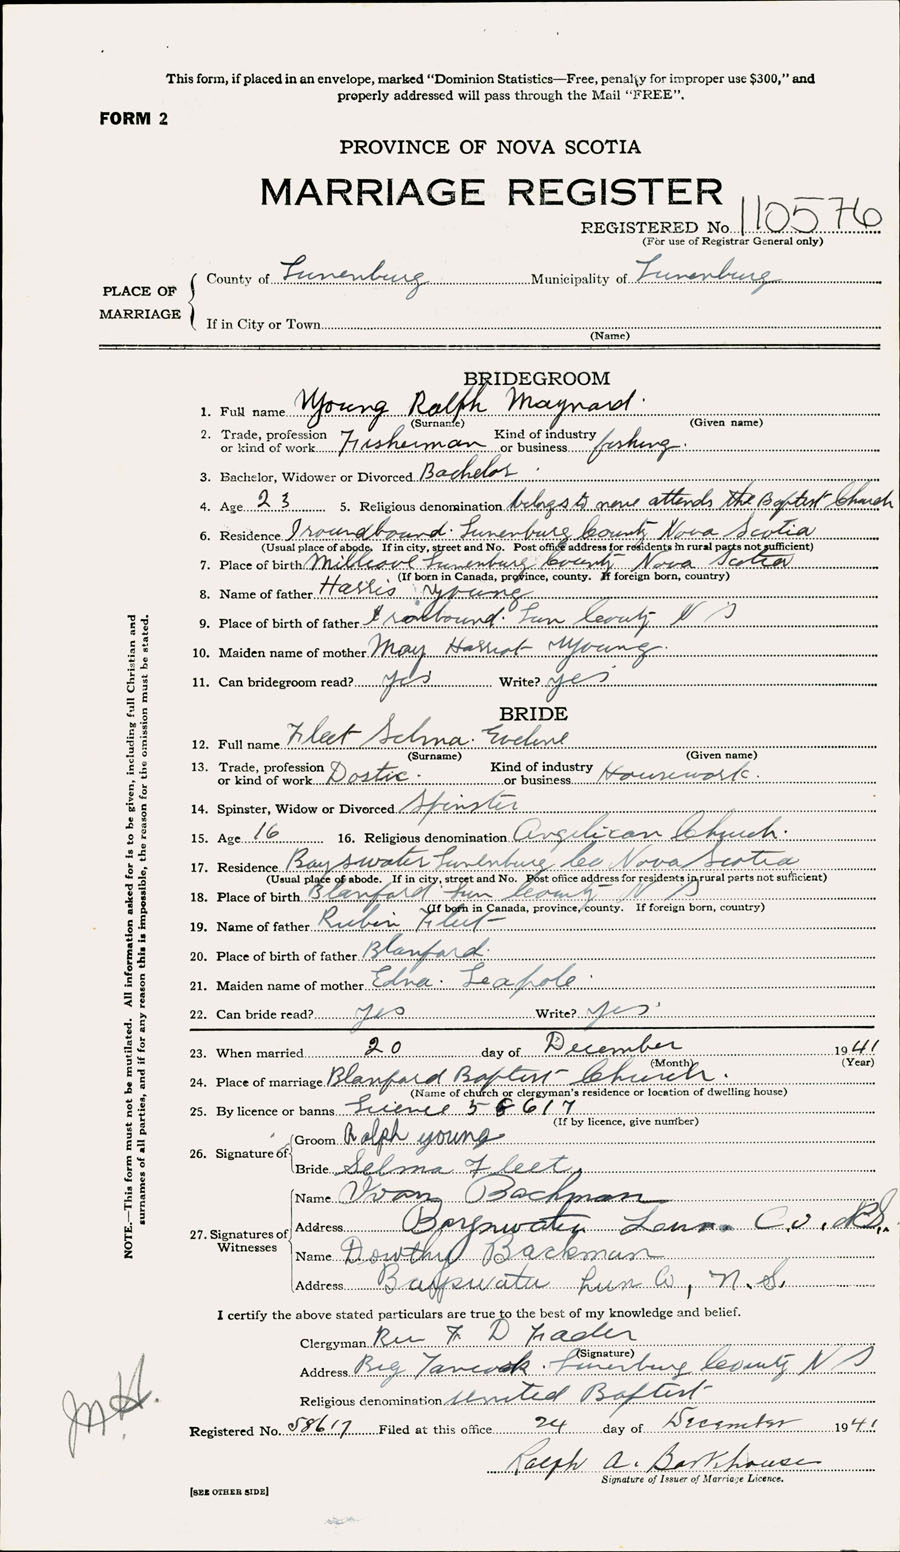 This form, if placed in an envelope, marked "Dominion Statistics—Free, penalty for improper use $300," and
properly addressed will pass through the Mail "FREE".
FORM 2
PROVINCE OF NOVA SCOTIA
MARRIAGE REGISTER
REGISTERED No. 110576
(For use of Registrar General only)
PLACE OF MARRIAGE
County of Lunenburg Municipality of Lunenburg
If in City or Town
(Name)
BRIDEGROOM
1. Full name Young Ralph Maynard
(Surname) (Given name)
2. Trade, profession or kind of work Fisherman Kind of industry or business fishing.
3. Bachelor, Widower or Divorced Bachelor.
4. Age 23 5. Religious denomination belongs to none attends the Baptist Church
6. Residence Ironbound. Lunenburg County Nova Scotia
(Usual place of abode. If in city, street and No. Post office address for residents in rural parts not sufficient)
7. Place of birth Millcove Lunenburg County Nova Scotia
(If born in Canada, province, county. If foreign born, country)
8. Name of father Harris Young
9. Place of birth of father Ironbound. Lun County N S
10. Maiden name of mother May Harriot Young.
11. Can bridegroom read? yes Write? yes
BRIDE
12. Full name Fleet Selma. Eveline
(Surname) (Given name)
13. Trade, profession or kind of work Dostic. Kind of industry or business Housework.
14. Spinster, Widow or Divorced Spinster
15. Age 16 16. Religious denomination Anglican Church.
17. Residence Bayswater Lunenburg Co Nova Scotia
(Usual place of abode. If in city, street and No. Post office address for residents in rural parts not sufficient)
18. Place of birth Blanford Lun County N S
(If born in Canada, province, county. If foreign born, country)
19. Name of father Rubin Fleet
20. Place of birth of father Blanford.
21. Maiden name of mother Edna. Seapole.
22. Can bride read? yes Write? yes
23. When married 20 day of December 1941
(Month) (Year)
24. Place of marriage Blanford Baptist Church.
(Name of church or clergyman's residence or location of dwelling house)
25. By licence or banns Licence 58617
(If by licence, give number)
26. Signature of
Groom Ralph young
Bride Selma Fleet
27. Signatures of Witnesses
Name Ivan Bachman
Address Bayswater Lun. Co. N.S.
Name Dowthy Backman
Address Bayswater Lun Co, N.S.
I certify the above stated particulars are true to the best of my knowledge and belief.
Clergyman Rev F D Fader
(Signature)
Address Big Tancook. Lunenburg County N S
Religious denomination United Baptist
Registered No. 58617 Filed at this office 24 day of December 1941
Ralph A. Barkhouse
Signature of Issuer of Marriage Licence.
[SEE OTHER SIDE]
NOTE.—This form must not be mutilated. All information asked for is to be given, including full Christian and
surnames of all parties, and if for any reason this is impossible, the reason for the omission must be stated.
JMH.